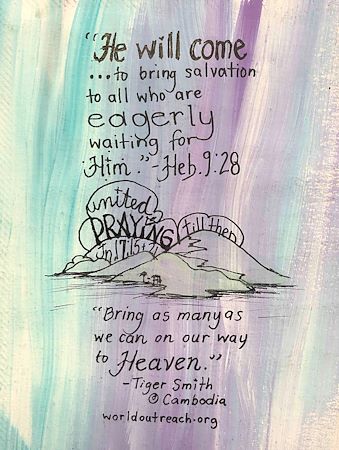 "He will come
...to bring salvation
to all who are
eagerly
waiting for
Him." - Heb. 9:28
united
PRAYING till then
Jn 17:15+21
"Bring as many as
we can on our way
to Heaven."
- Tiger Smith
© Cambodia
worldoutreach.org